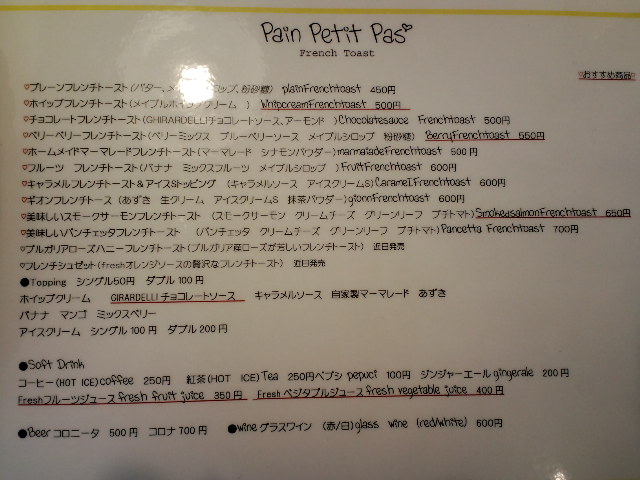 Pain Petit Pas
French Toast
おすすめ商品
プレーンフレンチトースト(バター、 ップ、粉砂糖) plainFrenchtoast 450円
ホイップフレンチトースト(メイプルホイップクリーム ) WhipcreamFrenchtoast 500円
チョコレートフレンチトースト(GHIRARDELLIチョコレートソース、アーモンド ) Chocolatesauce Frenchtoast 500円
ベリーベリーフレンチトースト(ベリーミックス ブルーベリーソース メイプルシロップ 粉砂糖) BerryFrenchtoast 550円
ホームメイドマーマレードフレンチトースト(マーマレード シナモンパウダー) marmaladeFrenchtoast 500円
フルーツ フレンチトースト(バナナ ミックスフルーツ メイプルシロップ ) FruitFrenchtoast 600円
キャラメルフレンチトースト&アイスSトッピング (キャラメルソース アイスクリームS) CaramelFrenchtoast 600円
ギオンフレンチトース (あずき 生クリーム アイスクリームS 抹茶パウダー) gionnFrenchtoast 600円
美味しいスモークサーモンフレンチトースト (スモークサーモン クリームチーズ グリーンリーフ プチトマト) SmokedsalmonFrenchtoast 650円
美味しいパンチェッタフレンチトースト (パンチェッタ クリームチーズ グリーンリーフ プチトマト) Pancetta Frenchtoast 700円
ブルガリアローズハニーフレンチトースト(ブルガリア産ローズが芳しいフレンチトースト) 近日発売
フレンチシュゼット(freshオレンジソースの贅沢なフレンチトースト) 近日発売
●Topping シングル50円 ダブル100円
ホイップクリーム GIRARDELLIチョコレートソース キャラメルソース 自家製マーマレード あずき
バナナ マンゴ ミックスベリー
アイスクリーム シングル100円 ダブル200円
●Soft Drink
コーヒー(HOT ICE)coffee 250円 紅茶(HOT ICE)Tea 250円ペプシ pepuci 100円 ジンジャーエール gingerale 200円
Freshフルーツジュース fresh fruit juice 350円 Freshベジタブルジュース fresh vegetable juice 400円
●Beer コロニータ 500円 コロナ700円 ●wine グラスワイン (赤/白)glass wine (red/white) 600円